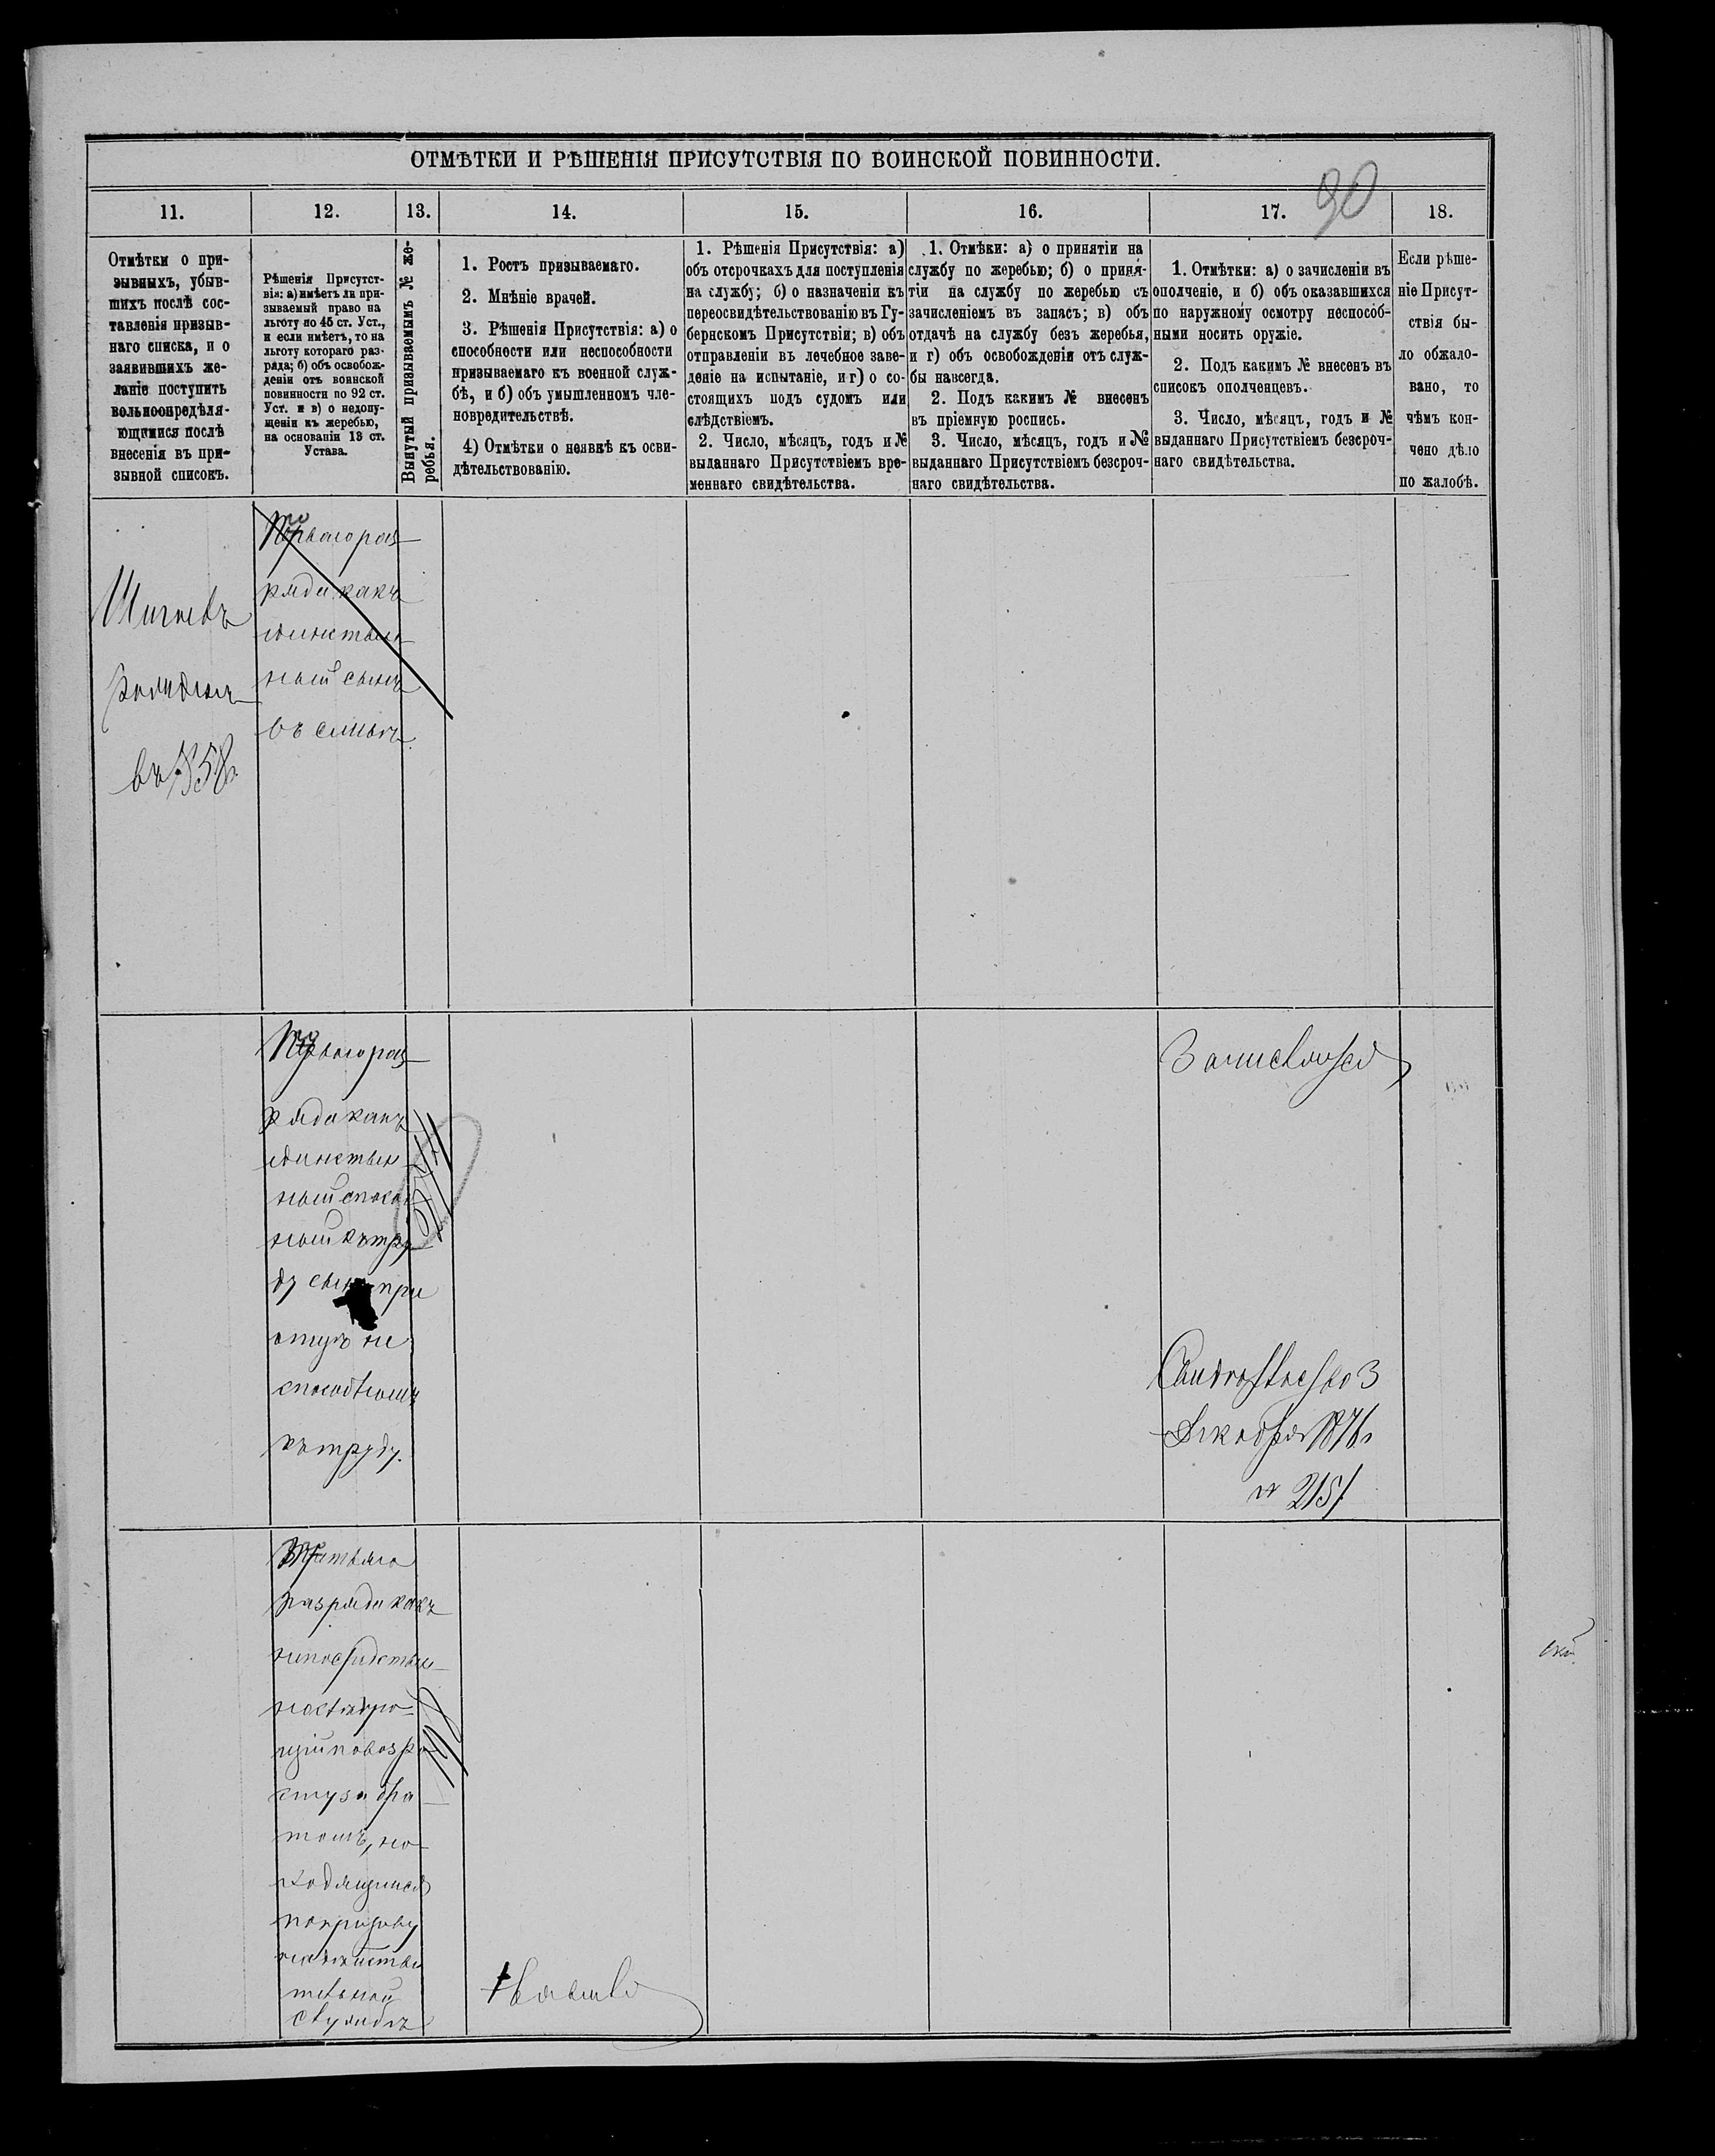 ОТМѢТКИ И РѢШЕНІЯ ПРИСУТСТВІЯ ПО ВОИНСКОЙ ПОВИННОСТИ.
90
11.
12.
13.
14.
15.
16.
17.
18.
Отмѣтки о при-
зывныхъ, убыв-
шихъ послѣ сос-
тавленія призыв-
наго списка, и о
заявившихъ же-
ланіе поступить
вольноопредѣля-
ющимися послѣ
внесенія въ при-
зывной списокъ.
Рѣшенія Присутст-
вія: а) имѣетъ ли при-
зываемый право на
льготу по 45 ст. Уст.,
и если имѣетъ, то на
льготу котораго раз-
ряда; б) объ освобож-
деніи отъ воинской
повинности по 92 ст.
Уст. и в) о недопу-
щеніи къ жеребью,
на основаніи 13 ст.
Устава.
Вынутый призываемымъ № же-
ребья.
1. Ростъ призываемаго.
2. Мнѣніе врачей.
3. Рѣшенія Присутствія: а) о
способности или неспособности
призываемаго къ военной служ-
бѣ, и б) объ умышленномъ чле-
новредительствѣ.
4) Отмѣтки о неявкѣ къ осви-
дѣтельствованію.
1. Рѣшенія Присутствія: а)
объ отсрочкахъ для поступленія
на службу; б) о назначеніи къ
переосвидѣтельствованію въ Гу-
бернскомъ Присутствіи; в) объ
отправленіи въ лечебное заве-
деніе на испытаніе, и г) о со-
стоящихъ подъ судомъ или
слѣдствіемъ.
2. Число, мѣсяцъ, годъ и №
выданнаго Присутствіемъ вре-
меннаго свидѣтельства.
1. Отмѣки: а) о принятіи на
службу по жеребью; б) о приня-
тіи на службу по жеребью съ
зачисленіемъ въ запасъ; в) объ
отдачѣ на службу безъ жеребья,
и г) объ освобожденіи отъ служ-
бы навсегда.
2. Подъ какимъ № внесенъ
въ пріемную роспись.
3. Число, мѣсяцъ, годъ и №
выданнаго Присутствіемъ безсроч-
наго свидѣтельства.
1. Отмѣтки: а) о зачисленіи въ
ополченіе, и б) объ оказавшихся
по наружному осмотру неспособ-
ными носить оружіе.
2. Подъ какимъ № внесенъ въ
списокъ ополченцевъ.
3. Число, мѣсяцъ, годъ и №
выданнаго Присутствіемъ безсроч-
наго свидѣтельства.
Если рѣше-
ніе Присут-
ствія бы-
ло обжало-
вано, то
чѣмъ кон-
чено дѣло
по жалобѣ.
Перваго раз-
ряда какъ
единствен-
ный сынъ
въ семьѣ.
въ 1858
Перваго раз-
ряда какъ
единствен-
ный способ
ный къ тру
ду сынъ при
отцѣ не
способномъ
къ труду.
Свидѣтельство 3
Декабря 1876 г
№ 2151
Третьяго
разряда какъ
непосредствен-
но слѣдую-
щій по возра-
сту за бра-
томъ, на-
ходящимся
по призыву
на дѣйстви
тельной
службѣ